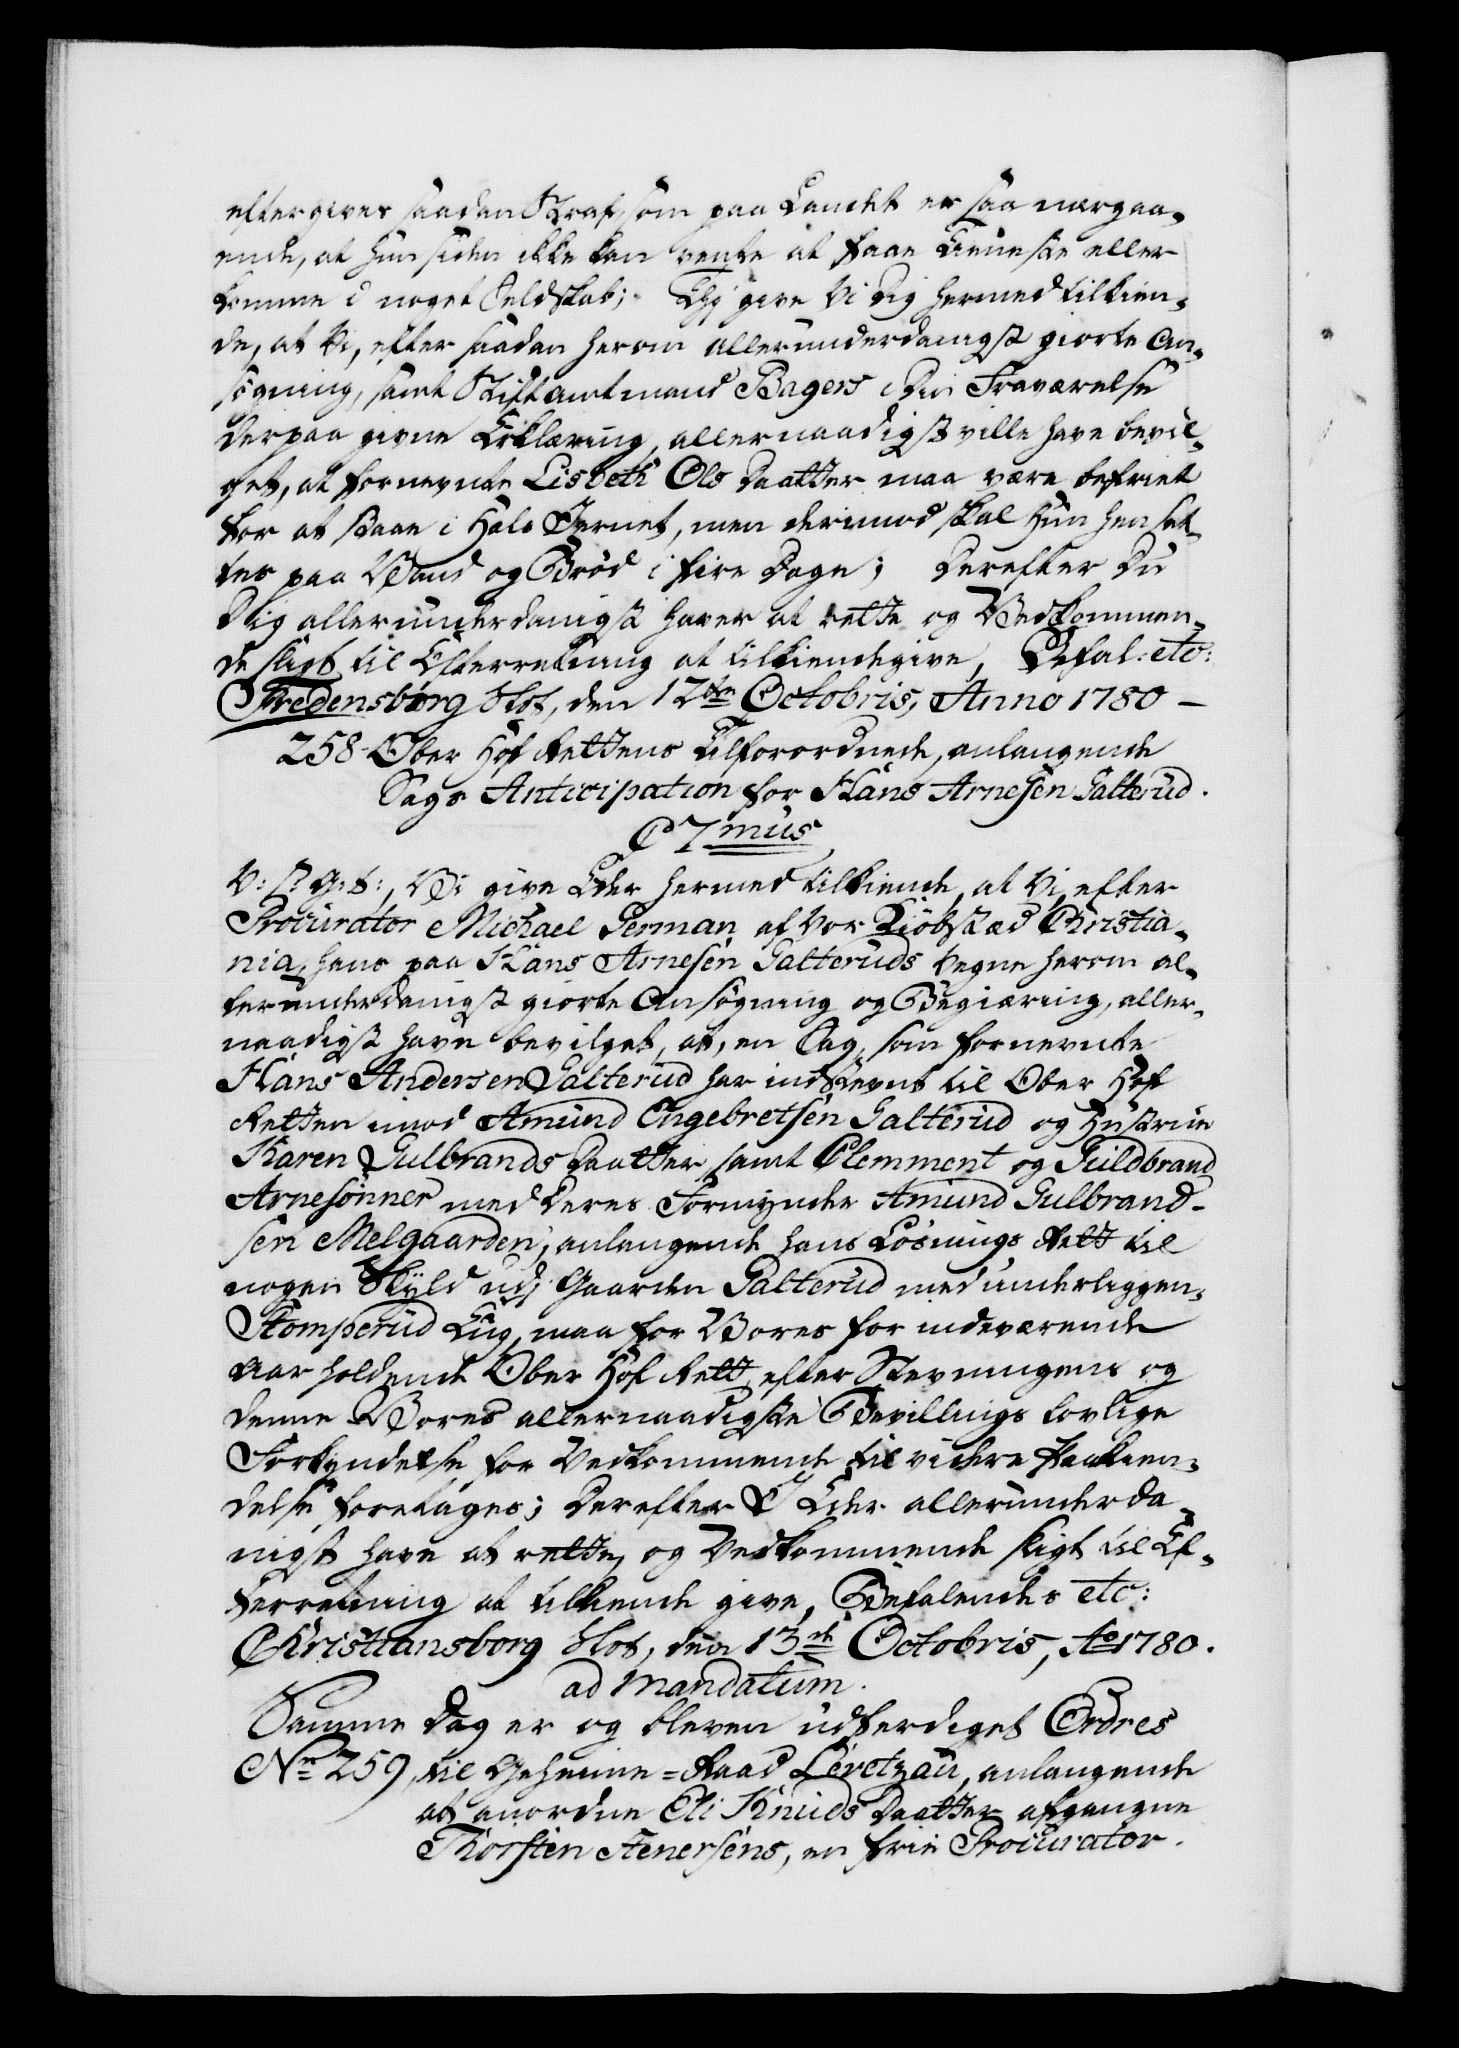 eftergives saadan Straf, som paa Landet er saa nærgaa-
ende, at hun siden ikke kan vente at faae Tieneste eller
komme i noget Selskab; Thi give Vi Dig hermed tilkien-
de, at Vi, efter saadan herom allerunderdanigst giorte An-
søgning, samt Stiftamtmand Bagers i Din Fraværelse
derpaa givne Erklæring, allernaadigst ville have bevil-
get, at fornevnte Lisbeth Ols Daatter maa være befriet
for at staae i Hals Jernet, men derimod skal Hun hensæt-
tes paa Vand og Brød i fire Dage; Derefter Du
Dig allerunderdanigst haver at rette og Vedkommen-
de sligt til Efterretning at tilkiendegive, Befal: etc:
Fredensborg Slot, den 12te Octobris, Anno 1780 —
258 Ober Hof Rettens Tilforordnede, anlangende
Sags Anticipation for Hans Arnesen Galterud.
C 7mus
V: S: G: T:, Vi give Eder hermed tilkiende, at Vi, efter
Procurator Michael German af Vor Kiøbstæd Christia-
nia, hans paa Hans Arnesen Galteruds Vegne herom al-
lerunderdanigst giorte Ansøgning og Begiæring, aller-
naadigst have bevilget, at, en Sag, som fornevnte
Hans Andersen Galterud har indstevnt til Ober Hof
Retten imod Amund Engebretsen Galterud og Hustrue
Karen Gulbrands Daatter, samt Clemment og Guldbrand
Arnesønner med Deres Formynder Amund Gulbrand-
sen Melgaarden, anlangende hans Løsnings Rett til
nogen Skyld udj Gaarden Galterud med underliggen-
Stomperud Eng, maa for Vores for indeværende
Aar holdende Ober Hof Rett, efter Stevningens og
denne Vores allernaadigste Bevillings lovlige
Forkyndelse for Vedkommende til videre Paakien-
delse foretages; Derefter I Eder allerunderda-
nigst have at rette, og Vedkommende sligt til Ef-
terretning at tilkiende give, Befalendes etc:
Christiansborg Slot, den 13de Octobris, Ao 1780.
ad mandatum.
Samme Dag er og bleven udferdiget Ordres
No 259, til Geheime=Raad Levetzau, anlangende
at anordne Eli Knuds Daatter afgangne
Thorsten Stenersens, en frie Procurator.